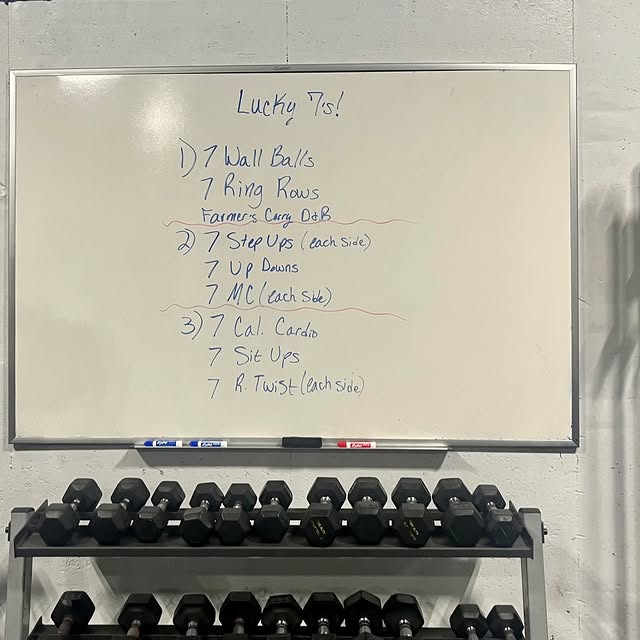 Lucky 7's!
1) 7 Wall Balls
7 Ring Rows
Farmer's Carry D+B
2) 7 Step Ups (each side)
7 Up Downs
7 MC (each side)
3) 7 Cal. Cardio
7 Sit Ups
7 R. Twist (each side)